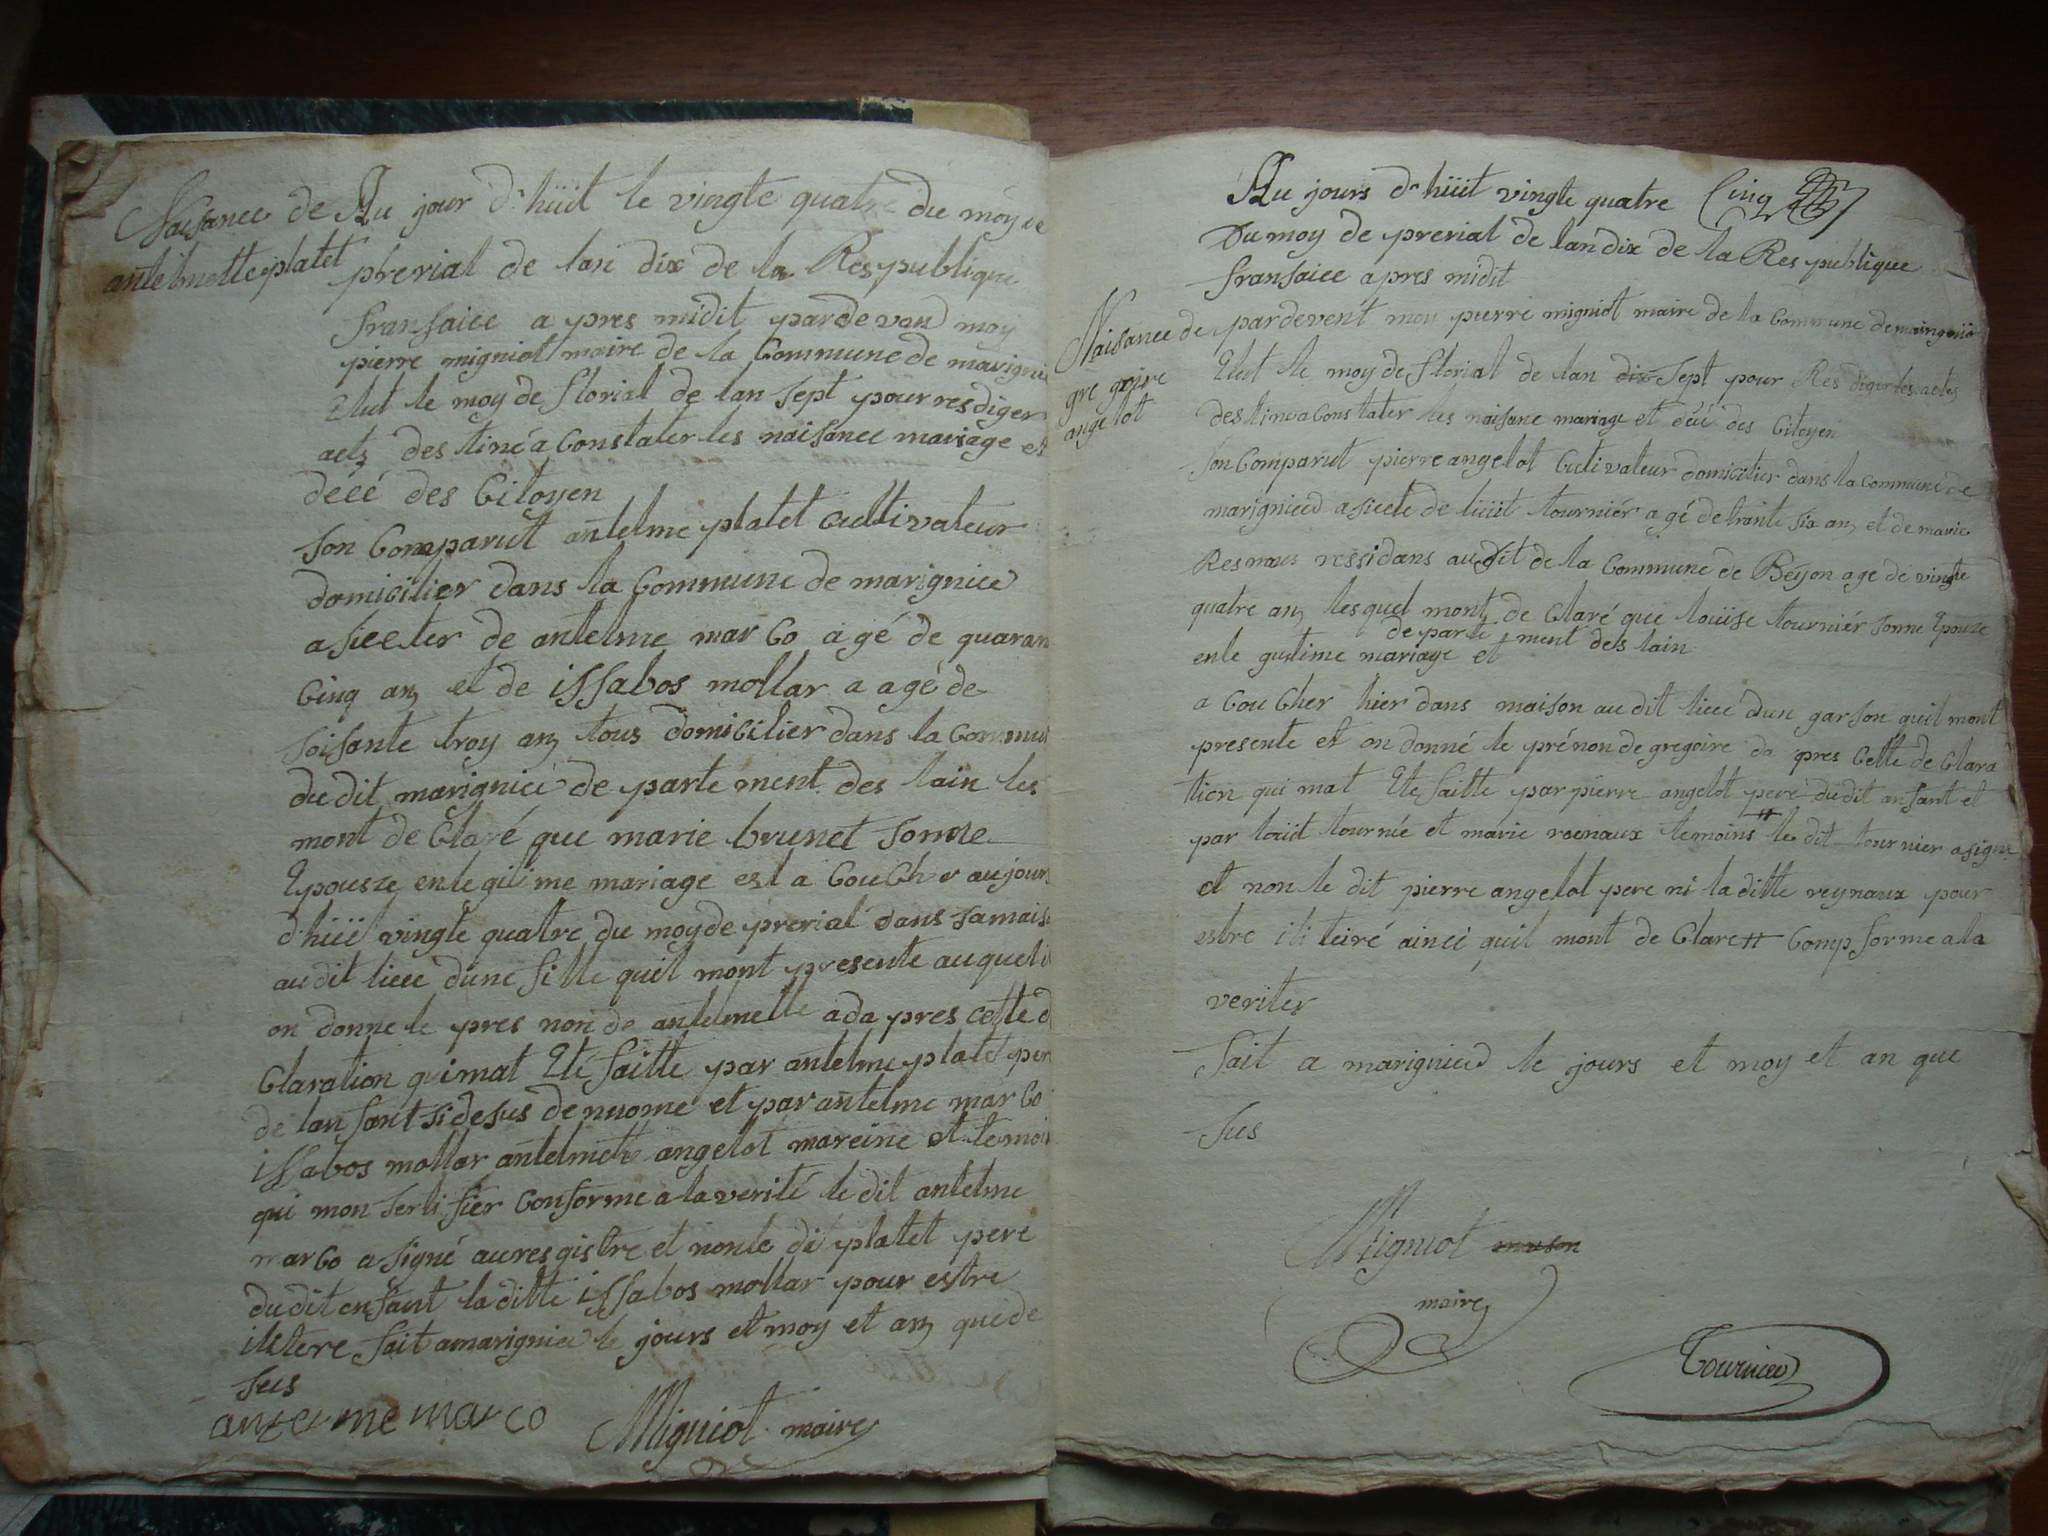 Naisance de
antelmette platet
Au jour d'hüit le vingte quatre du moy de
prerial de lan dix de la Respublique
fransaice a pres midit pardevan moy
pierre migniot maire de la Commune de marignie
Elut le moy de florial de lan sept pour resdiger
acts des tiné a Constater les naisance mariage et
déée des Citoyen
son Comparut antelme platet Cultivateur
domicilier dans la Commune de marignieu
a sieeter de antelme marco agé de quaran
Cinq an et de issabos mollar a agé de
soisante troy an tous domicilier dans la Commu
du dit marignieu de parte ment des lain les
mont de Claré que marie brunet sonne
Epousze en le gui me mariage est a Coucher aujours
d'hüi vingte quatre du moy de prerial dans sa mais
au dit lieu dune fille quil mont presente auquel
on donne le pres non de antelmette a da pres cette d
Claration qui mat Eté faitte par antelme platet per
de lan fant si desus denuomé et par antelme marco
issabos mollar antelmette angelot mareine et temoin
qui mon serti fier Conforme a la verité le dit antelme
marco a signé au resgistre et non le di platet pere
du dit enfant la ditte issabos mollar pour estre
ilitere fait a marignieu le jours et moy et an que de
sus
antelme marco Migniot maire
Cinq
Au jours d'hüit vingte quatre
Du moy de prerial de lan dix de la Res publique
fransaice apres midit
Naisance de
gregoire
angelot
pardevent moy pierre migniot maire de la Commune de
Elut le moy de florial de lan dix sept pour Res diger les actes
des tine a Constater les naisane mariage et déé des Citoyen
son Comparut pierre angelot Cultivateur domicilier dans la Commune de
marignieu a sieete de lüit tourniér agé de trante six an et de marie
Resnaus ressidans au dit de la Commune de Béÿon age de vingte
quatre an lesquel mont de Claré que louise tourniér sonne Epouze
de parte ment des lain
en le gustime mariage et
a Cou Cher hier dans maison au dit lieu dun garson quil mont
presente et on donné le prénon de gregoire da pres Cette de Clara
tion qui mat Ete faitte par pierre angelot peré du dit anfant et
par loüit tournie et marie roenaux temoins le dit tournier a signe
et non le dit pierre angelot pere ni la ditte reynaux pour
estre ili teiré ainci quil mont de Clare Comp forme a la
veriter
fait a marignieu le jours et moy et an que
sus
Migniot
maire
Tournier